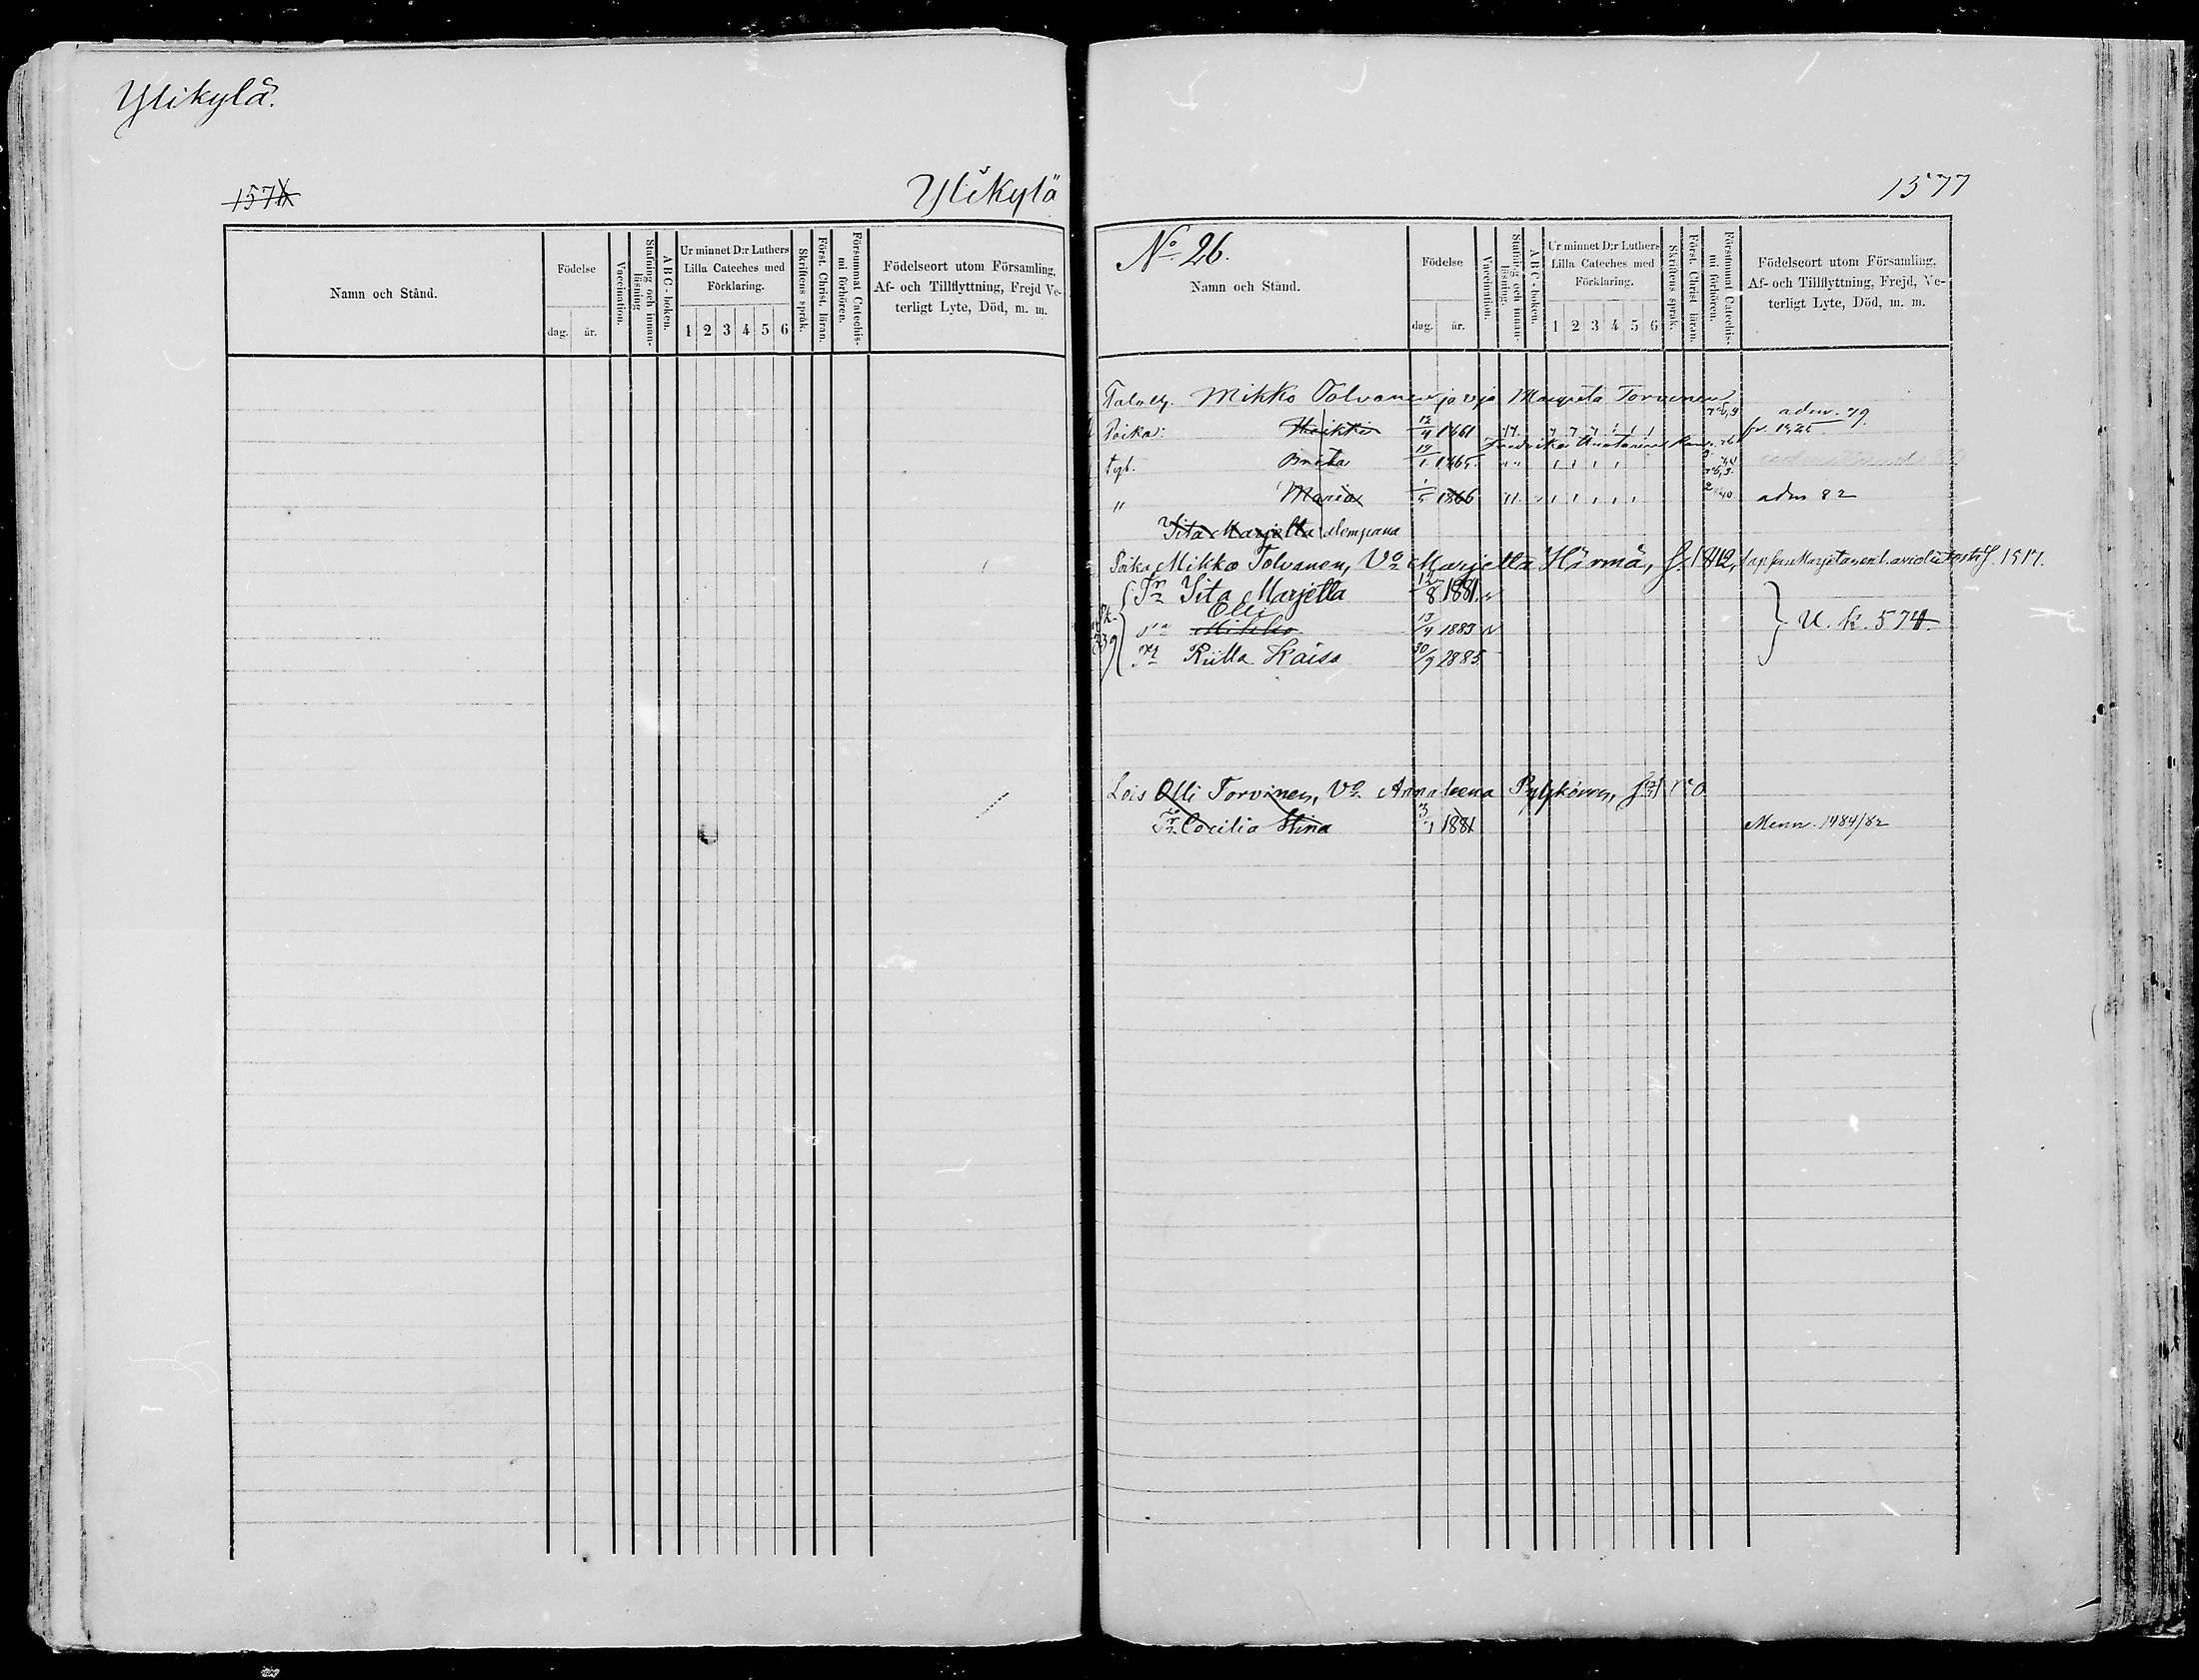 Ylikylä.
157
Ylikylä
Namn och Stånd.
Födelse
dag. år.
Vaccination.
Stafning och innan-
läsning
A B C - boken.
Ur minnet D:r Luthers
Lilla Cateches med
Förklaring.
1 2 3 4 5 6
Skriftens språk.
Först. Christ läran.
Försummat Catechis-
mi förhören.
Födelseort utom Församling,
Af- och Tillflyttning, Frejd Ve-
terligt Lyte, Död, m. m.
1577
No 26.
Namn och Stånd.
Födelse
dag. år.
Vaccination.
Stafning och innan-
läsning.
A B C - boken.
Ur minnet D:r Luthers
Lilla Cateches med
Förklaring.
1 2 3 4 5 6
Skriftens språk.
Först. Christ läran.
Försummat Catechis-
mi förhören.
Födelseort utom Församling,
Af- och Tillflyttning, Frejd, Ve-
terligt Lyte, Död, m. m.
Mikko Tolvanen ja v:ja Margreta Torvinen
Poika: Heikki 12/4 1861 adm. 79.
Tyt. Brita 1865
" Maria 1/5 1866 adm 82
Iita Marjetta alempana
Poika Mikko Tolvanen, Vo Marjetta Härmä, f. 1517.
Tr Iita Marjetta 12/8 1881
Olli
Mikko 13/4 1883 U. k. 574
Tr Riitta Kaisa 30/9 1885
Lois Olli Torvinen, Vo Anna Leena Pylkönen,
Tr Cecilia Stina 3/1 1881 Menn. 1484/82